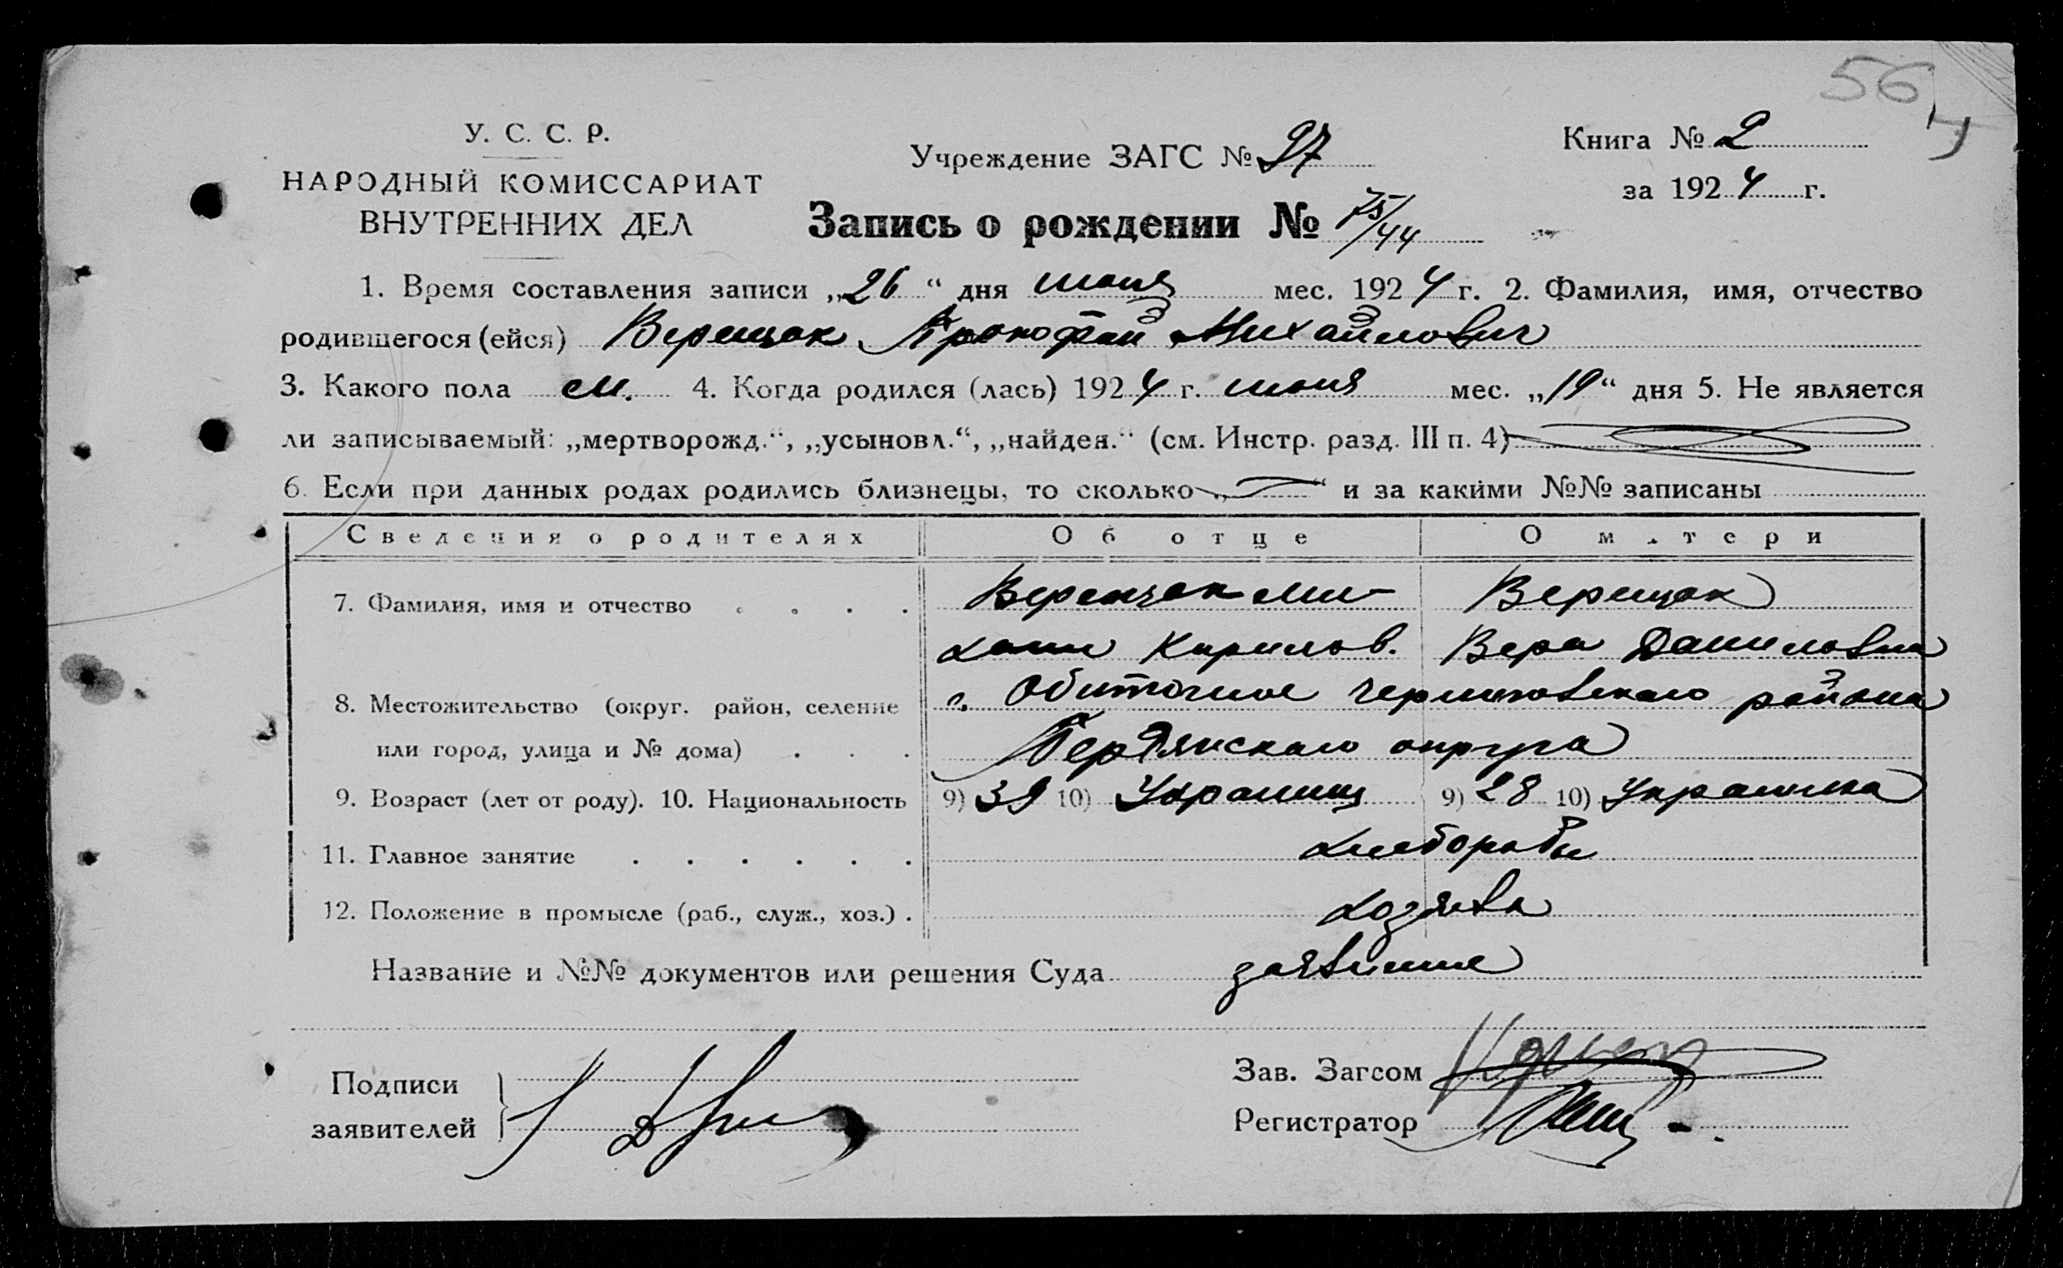 56
У. С. С. Р.
НАРОДНЫЙ КОМИССАРИАТ
ВНУТРЕННИХ ДЕЛ
Учреждение ЗАГС № 97
Книга № 2
за 1924 г.
Запись о рождении № 75/44
1. Время составления записи „26“ дня июня мес. 1924 г. 2. Фамилия, имя, отчество
родившегося (ейся) Верещак Прокофий Михайлович
3. Какого пола м. 4. Когда родился (лась) 1924 г. июня мес. „19“ дня 5. Не является
ли записываемый: „мертворожд.“, „усыновл.“, „найден.“ (см. Инстр. разд. III п. 4)
6. Если при данных родах родились близнецы, то сколько „ “ и за какими №№ записаны
Сведения о родителях Об отце О матери
7. Фамилия, имя и отчество . . . . Верещак Ми- Верещак
хаил Кирилов. Вера Даниловна
8. Местожительство (округ. район, селение с. Обиточное Черниговского района
или город, улица и № дома) . . . Бердянского округа
9. Возраст (лет от роду). 10. Национальность 9) 39 10) Украинец 9) 28 10) Украинка
11. Главное занятие . . . . . . хлеборобы
12. Положение в промысле (раб., служ., хоз.) . хозяева
Название и №№ документов или решения Суда заявление
Подписи
заявителей
Зав. Загсом
Регистратор